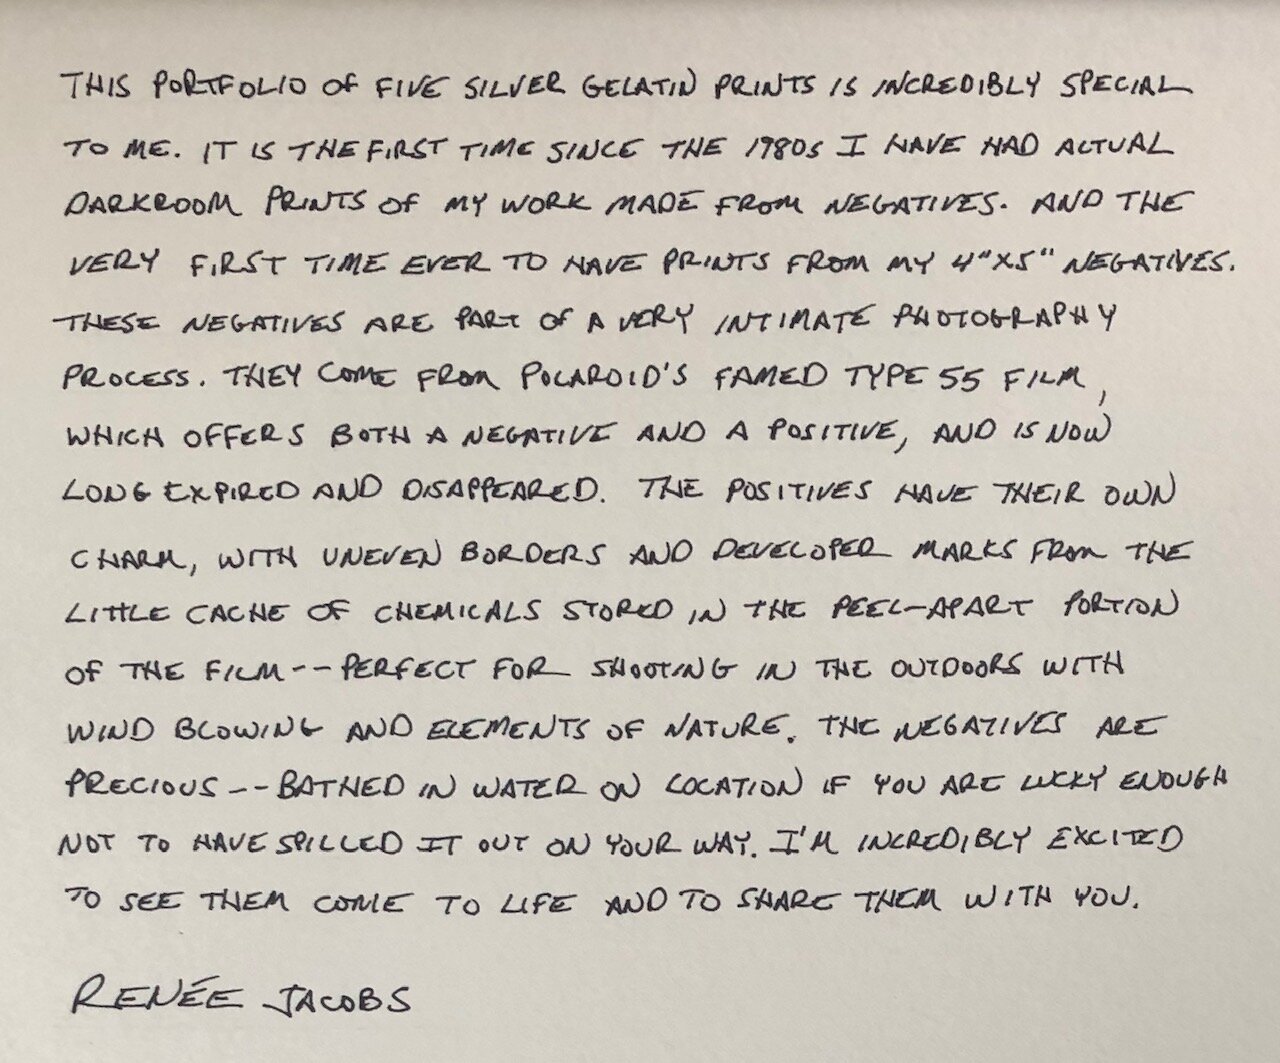 THIS PORTFOLIO OF FIVE SILVER GELATIN PRINTS IS INCREDIBLY SPECIAL
TO ME. IT IS THE FIRST TIME SINCE THE 1980s I HAVE HAD ACTUAL
DARKROOM PRINTS OF MY WORK MADE FROM NEGATIVES. AND THE
VERY FIRST TIME EVER TO HAVE PRINTS FROM MY 4"X5" NEGATIVES.
THESE NEGATIVES ARE PART OF A VERY INTIMATE PHOTOGRAPHY
PROCESS. THEY COME FROM POLAROID'S FAMED TYPE 55 FILM,
WHICH OFFERS BOTH A NEGATIVE AND A POSITIVE, AND IS NOW
LONG EXPIRED AND DISAPPEARED. THE POSITIVES HAVE THEIR OWN
CHARM, WITH UNEVEN BORDERS AND DEVELOPER MARKS FROM THE
LITTLE CACHE OF CHEMICALS STORED IN THE PEEL-APART PORTION
OF THE FILM -- PERFECT FOR SHOOTING IN THE OUTDOORS WITH
WIND BLOWING AND ELEMENTS OF NATURE. THE NEGATIVES ARE
PRECIOUS -- BATHED IN WATER ON LOCATION IF YOU ARE LUCKY ENOUGH
NOT TO HAVE SPILLED IT OUT ON YOUR WAY. I'M INCREDIBLY EXCITED
TO SEE THEM COME TO LIFE AND TO SHARE THEM WITH YOU.
RENÉE JACOBS